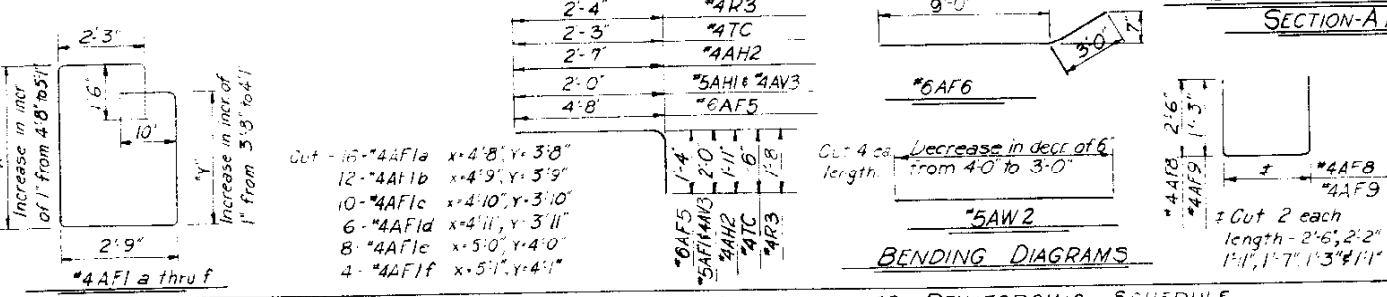 2'-3"
Increase in incr
of 1" from 4'8" to 5'1"
1'6"
10"
"Y"
Increase in incr of
1" from 3'8" to 4'1"
2'9"
#4AF1 a thru f
Cut - 16 - #4AF1a x=4'8", Y=3'8"
12 - #4AF1b x=4'9", Y=3'9"
10 - #4AF1c x=4'10", Y=3'10"
6 - #4AF1d x=4'11", Y=3'11"
8 - #4AF1e x=5'0", Y=4'0"
4 - #4AF1f x=5'1", Y=4'1"
2'-4" #4R3
2'-3" #4TC
2'-7" #4AH2
2'-0" #5AH1 & #4AV3
4'-8" #6AF5
1'-4"
2'-0"
1'-11"
1'-8"
#6AF5
#4AH2
#4TC
#4R3
9'-0"
3'-0"
7"
#6AF6
Cut 4 ea
length.
Decrease in decr. of 6"
from 4'-0" to 3'-0"
#5AW2
BENDING DIAGRAMS
SECTION-A
2'-6"
1'-3"
#4AF8
#4AF9
‡
#4AF8
#4AF9
‡ Cut 2 each
length - 2'-6", 2'-2"
1'-11", 1'-7", 1'-3" & 1'-1"
REINFORCING SCHEDULE